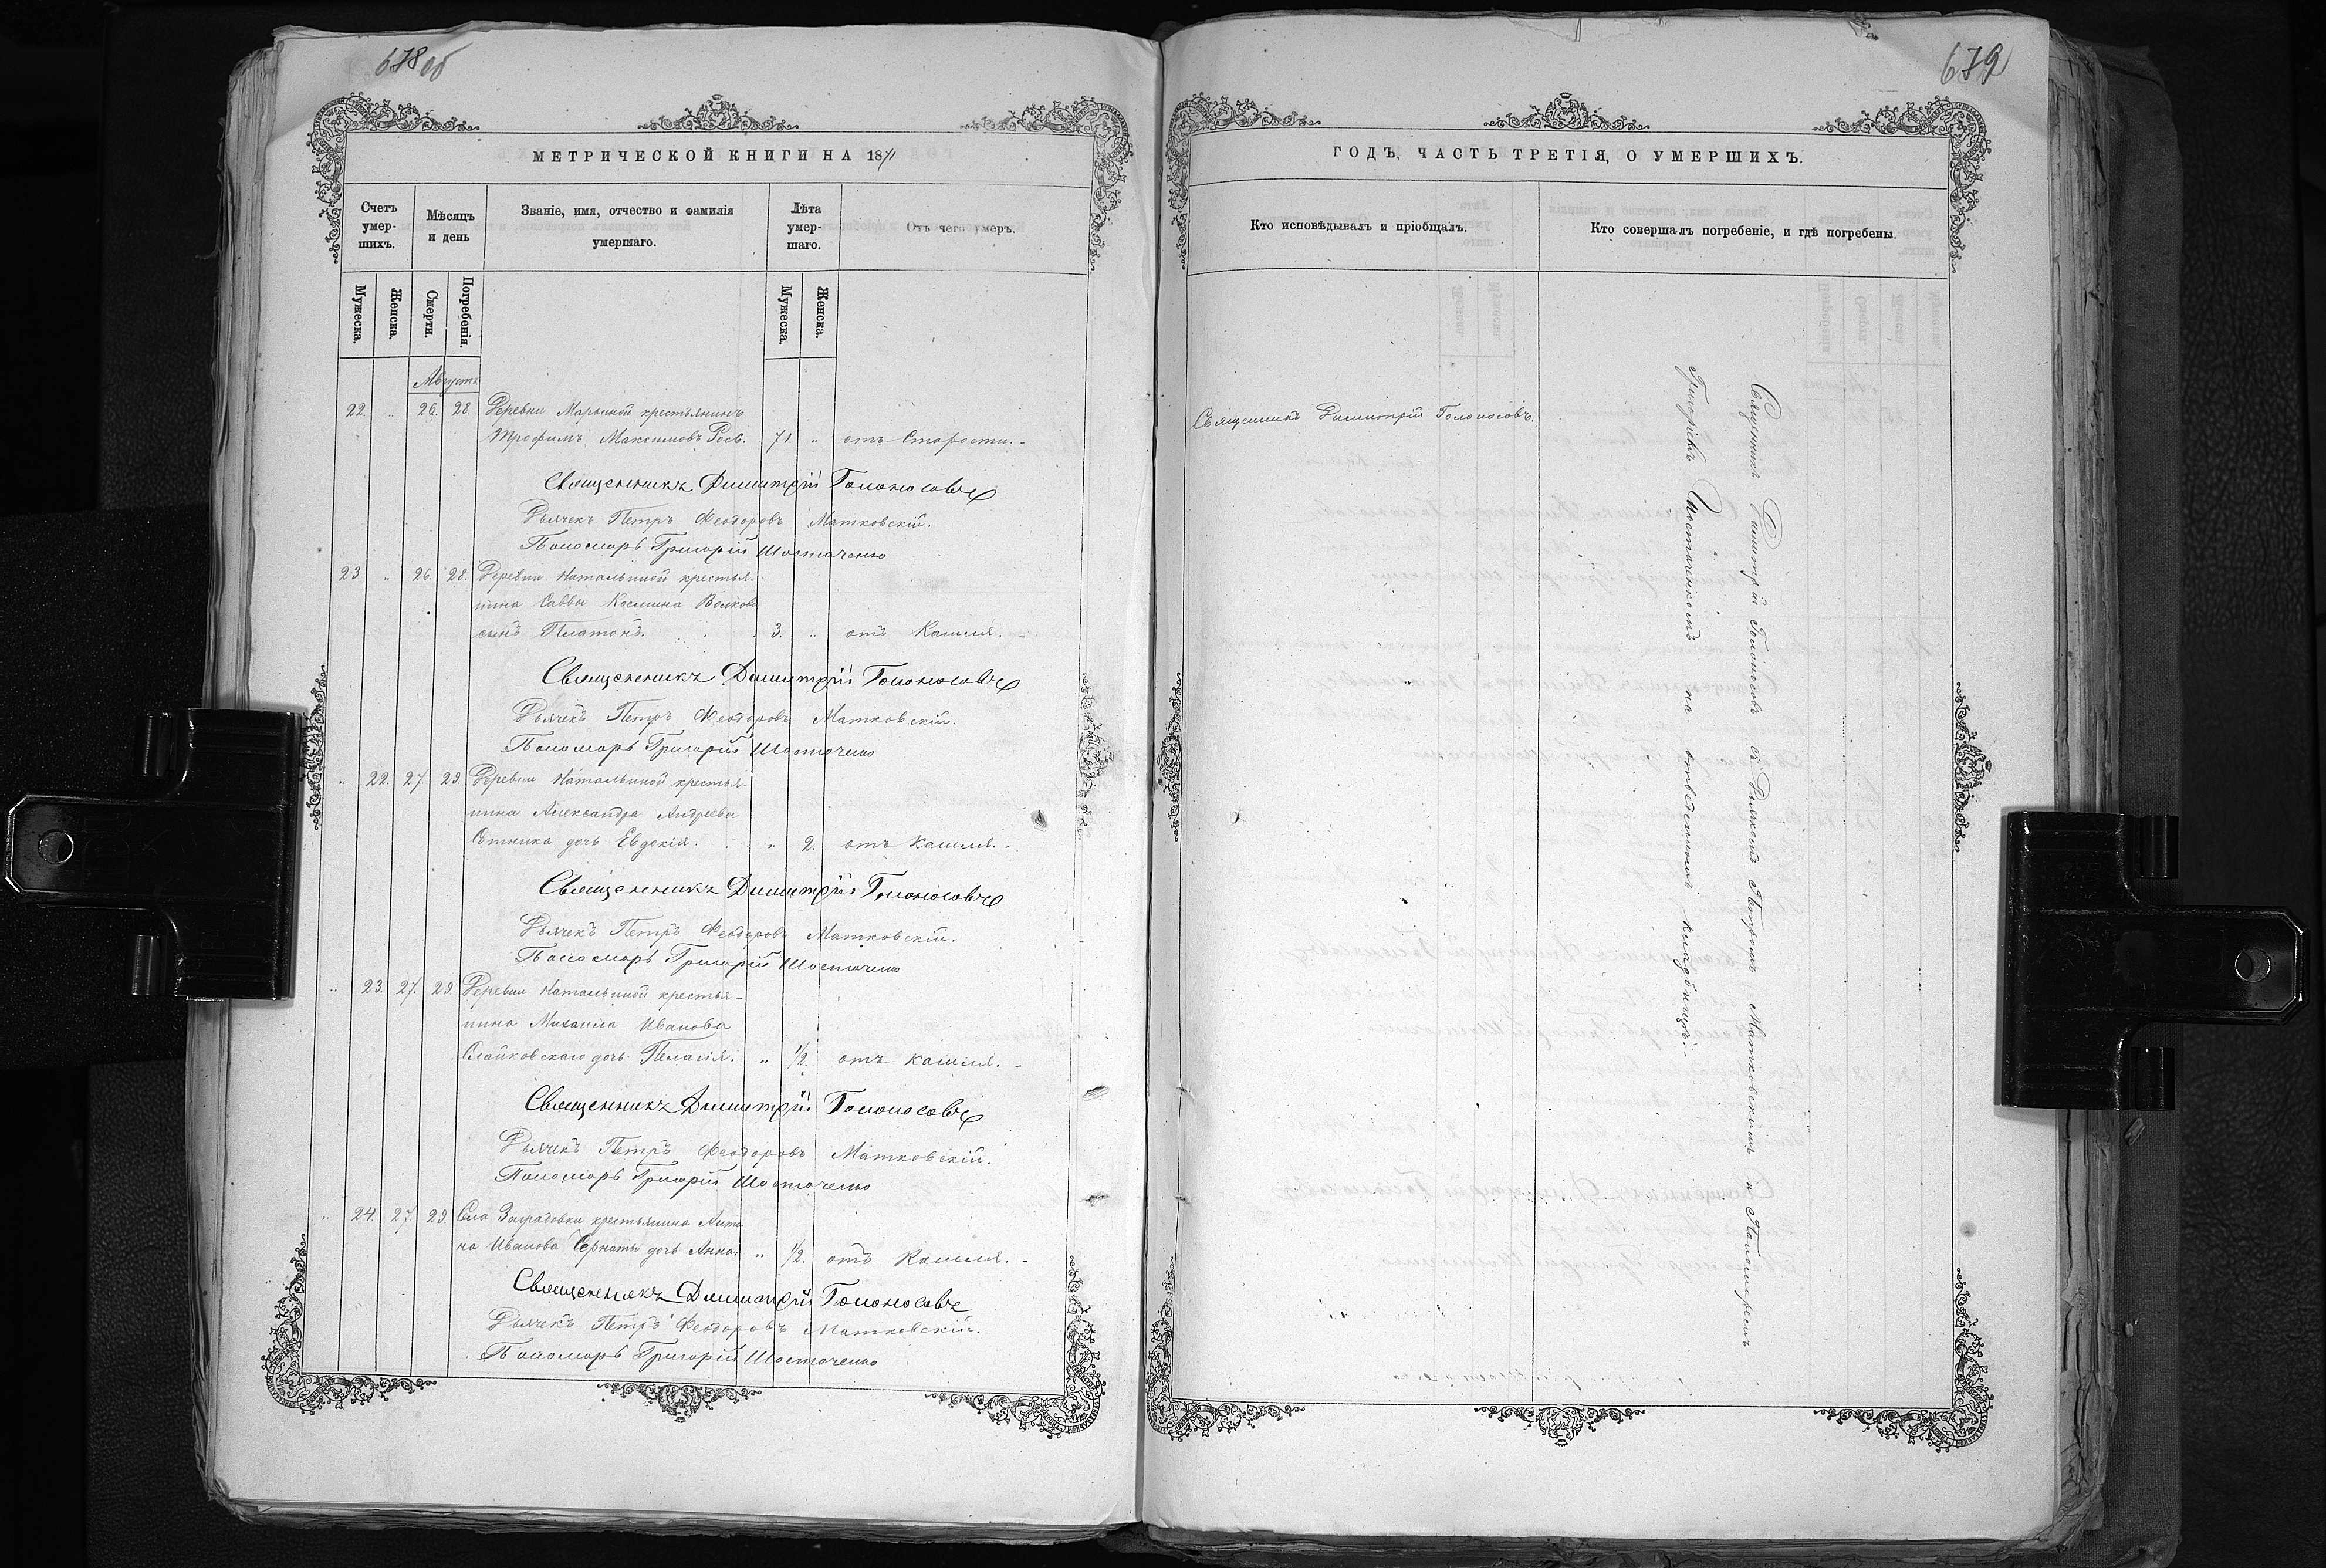 678 об
МЕТРИЧЕСКОЙ КНИГИ НА 1871
Счетъ умер-шихъ.
Мѣсяцъ и день
Званіе, имя, отчество и фамилія умершаго.
Лѣта умер-шаго.
Отъ чего умеръ.
Мужеска.
Женска.
Смерти.
Погребенія.
Мужеска.
Женска.
Августъ
22. " 26. 28. Деревни Марьиной крестьянинъ
Трофимъ Максимовъ 71 " отъ старости.
Священникъ Димитрій Голоносовъ
Дьячекъ Петръ Феодоровъ Матковскій.
Пономарь Григорій Шостаченко
23 " 26. 28. Деревни Натальиной крестья-
нина Саввы Космина Волкова
сынъ Платонъ. 3. " отъ кашля.
Священникъ Димитрій Голоносовъ
Дьячекъ Петръ Феодоровъ Матковскій.
Пономарь Григорій Шостаченко
" 22. 27. 29. Деревни Натальиной крестья-
нина Александра Андреева
Сотника дочь Евдокія. " 2. отъ кашля.
Священникъ Димитрій Голоносовъ
Дьячекъ Петръ Феодоровъ Матковскій.
Пономарь Григорій Шостаченко
" 23. 27. 29 Деревни Натальиной крестья-
нина Михаила Иванова
дочь Пелагія. " 1/2. отъ кашля.
Священникъ Димитрій Голоносовъ
Дьячекъ Петръ Феодоровъ Матковскій.
Пономарь Григорій Шостаченко
" 24. 27. 29. Села Заградовки крестьянина Анто
на Иванова дочь Анна. " 1/2. отъ кашля.
Священникъ Димитрій Голоносовъ
Дьячекъ Петръ Феодоровъ Матковскій.
Пономарь Григорій Шостаченко
679
ГОДЪ, ЧАСТЬ ТРЕТІЯ, О УМЕРШИХЪ.
Кто исповѣдывалъ и пріобщалъ.
Кто совершалъ погребеніе, и гдѣ погребены.
Священникъ Димитрій Голоносовъ.
Священникъ Димитрій Голоносовъ съ Дьячкомъ Петромъ Матковскимъ и Пономаремъ
Григоріемъ Шостаченкомъ на отведенномъ кладбищѣ.